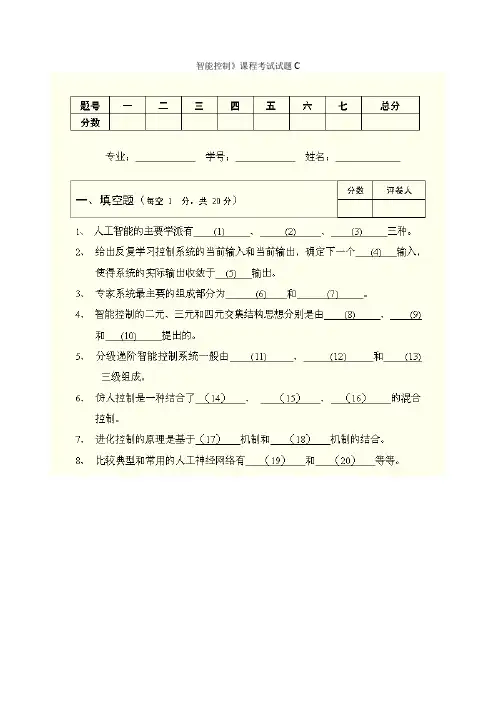 智能控制》课程考试试题C
题号 一 二 三 四 五 六 七 总分
分数
专业：____________ 学号：____________ 姓名：_____________
一、填空题（每空 1 分，共 20 分） 分数 评卷人
1、 人工智能的主要学派有 (1) 、 (2) 、 (3) 三种。
2、 给出反复学习控制系统的当前输入和当前输出，确定下一个 (4) 输入，
使得系统的实际输出收敛于 (5) 输出。
3、 专家系统最主要的组成部分为 (6) 和 (7) 。
4、 智能控制的二元、三元和四元交集结构思想分别是由 (8) 、 (9)
和 (10) 提出的。
5、 分级递阶智能控制系统一般由 (11) 、 (12) 和 (13)
三级组成。
6、 仿人控制是一种结合了（14） 、 （15） 、 （16） 的混合
控制。
7、 进化控制的原理是基于（17） 机制和 （18） 机制的结合。
8、 比较典型和常用的人工神经网络有 （19） 和 （20） 等等。